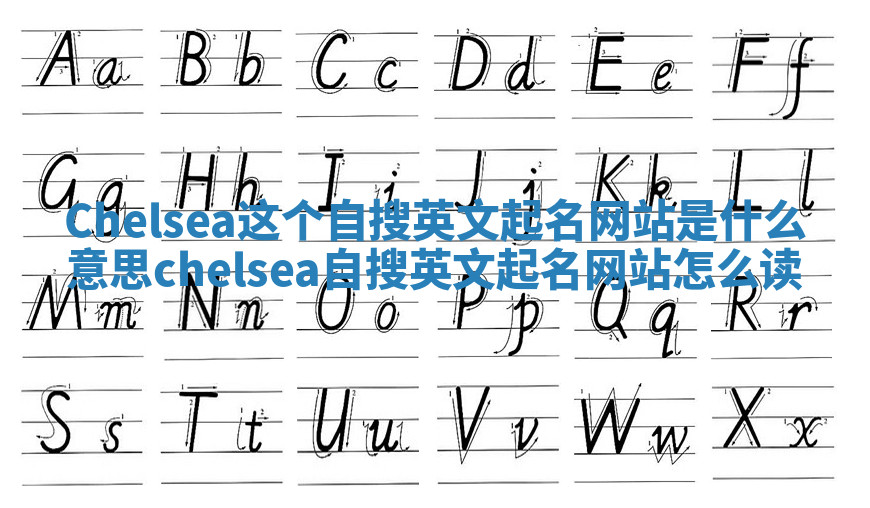 A a B b C c D d E e F f
G g H h I i J j K k L l
Chelsea这个自搜英文起名网站是什么
意思chelsea自搜英文起名网站怎么读
M m N n O o P p Q q R r
S s T t U u V v W w X x